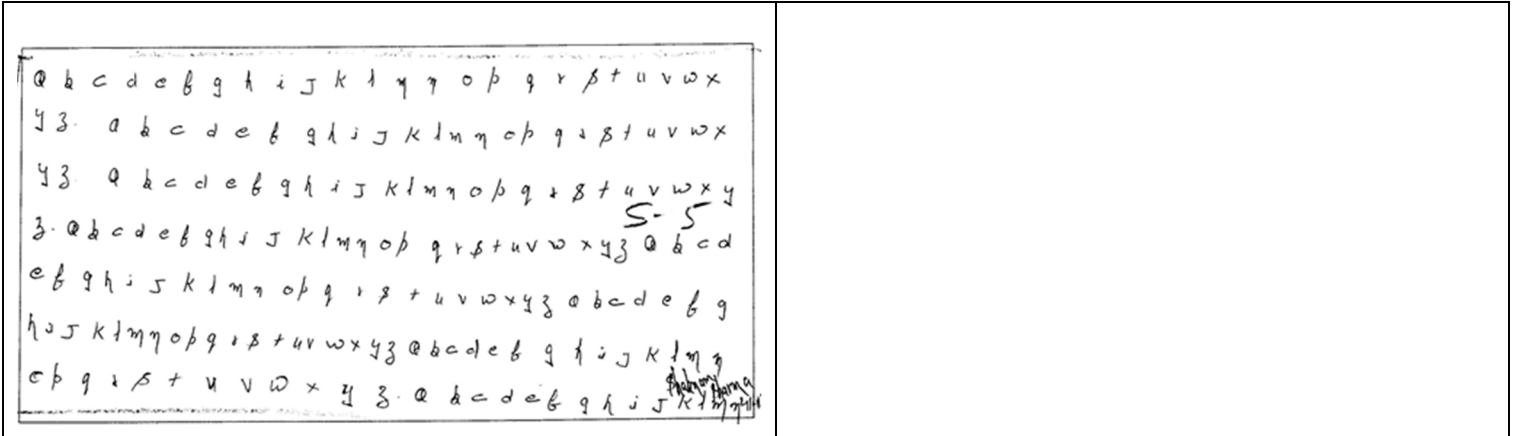 a b c d e f g h i J k l m n o p q r s t u v w x
y z. a b c d e f g h i J k l m n o p q r s t u v w x
y z a b c d e f g h i J k l m n o p q r s t u v w x y
S- 5
z. a b c d e f g h i J k l m n o p q r s t u v w x y z a b c d
e f g h i J k l m n o p q r s t u v w x y z a b c d e f g
h i J k l m n o p q r s t u v w x y z a b c d e f g h i J k l m n
o p q r s t u v w x y z. a b c d e f g h i J k l m n